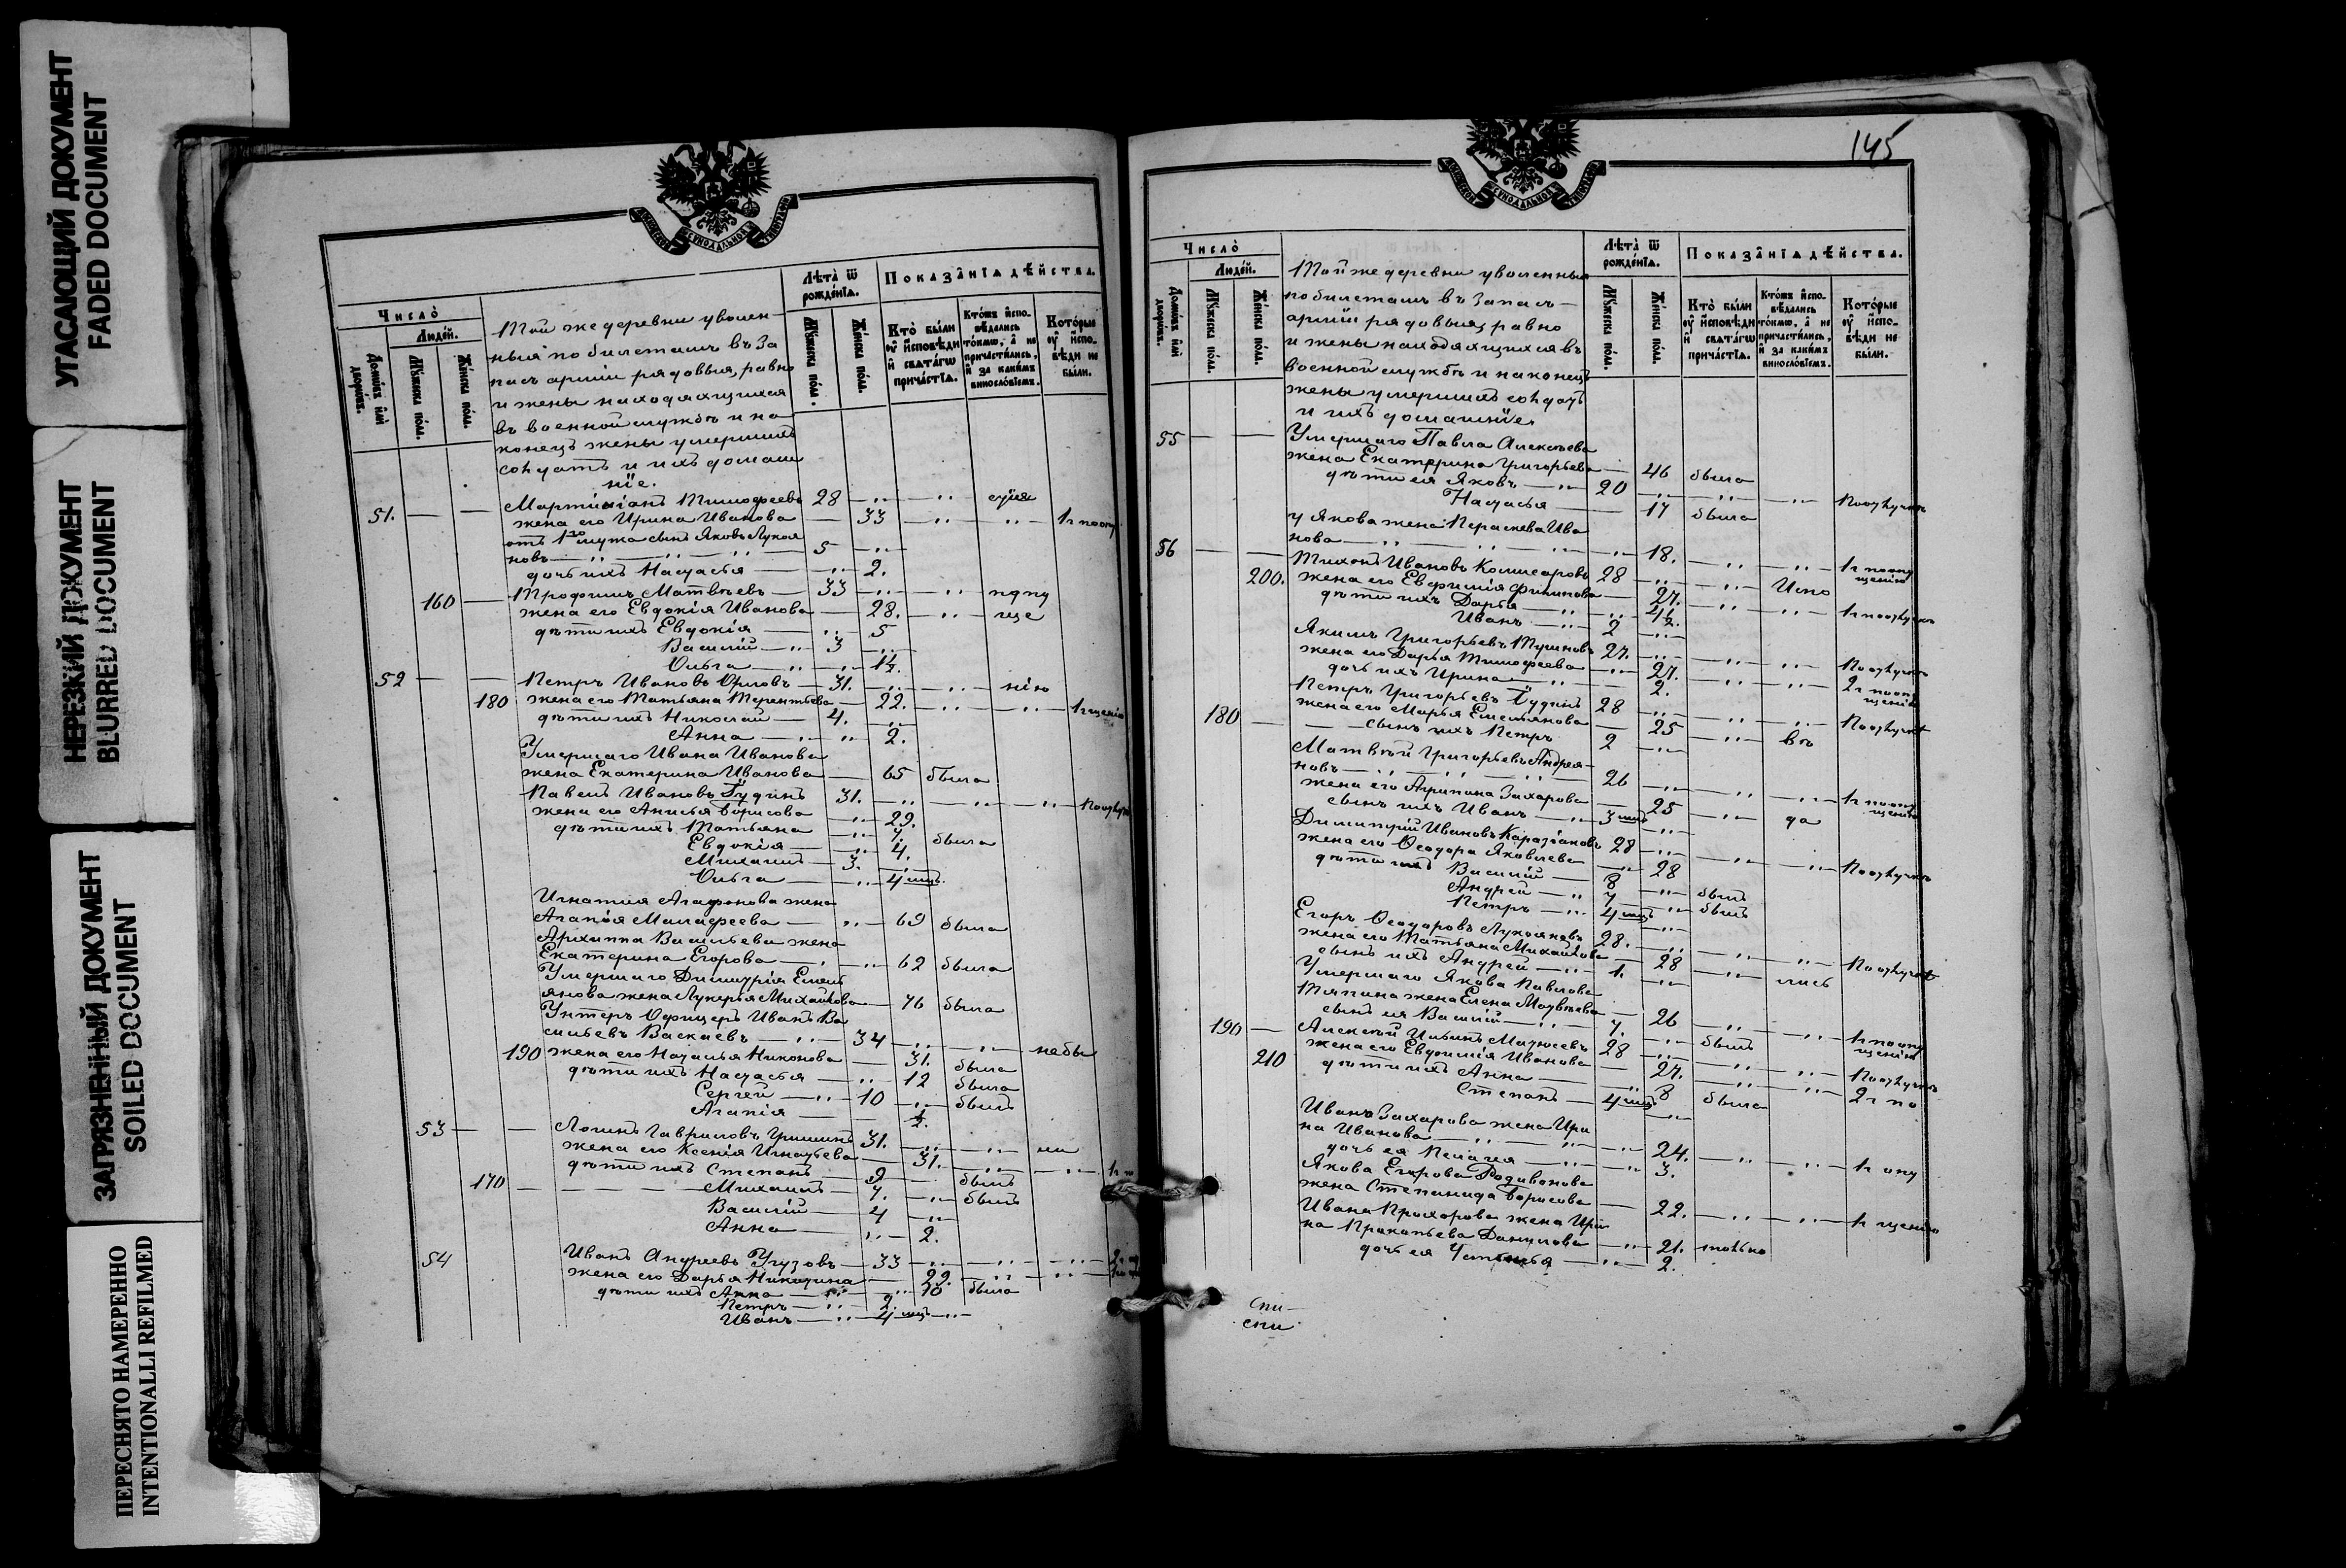 УГАСАЮЩИЙ ДОКУМЕНТ
FADED DOCUMENT
НЕРЕЗКИЙ ДОКУМЕНТ
BLURRED DOCUMENT
ЗАГРЯЗНЕННЫЙ ДОКУМЕНТ
SOILED DOCUMENT
ПЕРЕСНЯТО НАМЕРЕННО
INTENTIONALLI REFILMED
Число̀
Людéй.
Домѡвъ и҆лѝ дворѡвъ.
Мꙋ́жеска по́лꙋ.
Же́нска по́лꙋ.
Лѣта̀ ѿ рожде́нїѧ.
Мꙋ́жеска по́лꙋ.
Же́нска по́лꙋ.
Показа̑нїѧ дѣ́йства.
Кто̀ бы́ли ᲂу҆ и҆сповѣди и҆ свѧта́гѡ прича́стїѧ.
Кто́жъ и҆спо-
вѣдались
то́кмѡ, а҆ не
причасти́лись,
и҆ за каки́мъ
винослóвїемъ.
Кото́рые ᲂу҆ и҆спо-
вѣди не
бы́ли.
Той же деревни уволен-
ныя по билетамъ въ за
пасъ арміи рядовыя, равно
и жены находящихся
въ военной службѣ и на
конецъ жены умершихъ
солдатъ и ихъ домаш
ніе.
51. Мартиніанъ Тимофеевъ 28
жена его Ирина Иванова 33
отъ 1го мужа сынъ Яковъ Лукоя
новъ 5
дочь ихъ Настасья 2.
160 Трофимъ Матвѣевъ 33
жена его Евдокія Иванова 28.
дѣти ихъ Евдокія 5
Василій 3
Ольга 1½.
52 Петръ Ивановъ Орловъ 31.
180 жена его Татьяна Терентьева 22.
дѣти ихъ Николай 4.
Анна 2.
Умершаго Ивана Иванова
жена Екатерина Иванова 65 была
Павелъ Ивановъ Гудинъ 31.
жена его Анисья Борисова 29.
дѣти ихъ Татьяна 7. была
Евдокія 4.
Михаилъ 3.
Ольга 4 мцъ.
Игнатия Агафонова жена
Агапія Малафеева 69 была
Архиппа Васильева жена
Екатерина Егорова 62 была
Умершаго Димитрія Емель
янова жена Лукерья Михайлова 76 была
Унтеръ Офицеръ Иванъ Ва
сильевъ Васкаевъ 34 небы
190 жена его Наталья Никонова 31. была
дѣти ихъ Настасья 12 была
Сергей 10 былъ
Агапія ½.
53 Логинъ Гавриловъ Гришинъ 31. ли
жена его Ксенія Игнатьева 31.
дѣти ихъ Степанъ 9 былъ
170 Михаилъ 7. былъ
Василій 4
Анна 2.
54 Иванъ Андреевъ Угузовъ 33
жена его Дарья Никитина 29.
дѣти ихъ Анна 10 была
Петръ 2.
Иванъ 4 мцъ
145
Число̀
Людéй.
Домѡвъ и҆лѝ дворѡвъ.
Мꙋ́жеска по́лꙋ.
Же́нска по́лꙋ.
Лѣта̀ ѿ рожде́нїѧ.
Мꙋ́жеска по́лꙋ.
Же́нска по́лꙋ.
Показа̑нїѧ дѣ́йства.
Кто̀ бы́ли ᲂу҆ и҆сповѣди и҆ свѧта́гѡ прича́стїѧ.
Кто́жъ и҆спо-
вѣдались
то́кмѡ, а҆ не
причасти́лись,
и҆ за каки́мъ
винослóвїемъ.
Кото́рые ᲂу҆ и҆спо-
вѣди не
бы́ли.
Той же деревни уволенныя
по билетамъ въ запасъ
арміи рядовыя, равно
и жены находящихся въ
военной службѣ и наконецъ
жены умершихъ солдатъ
и ихъ домашніе.
55 Умершаго Павла Алексѣева
жена Екатерина Григорьева 46 была
дѣти ея Яковъ 20 По отлучкѣ
Настасья 17 была
у Якова жена Пераскева Ива
нова 18. по опу
щенію
56 Тихонъ Ивановъ Комисаровъ 28 Испо
200. жена его Евфимія Филипова 27. по отлучкѣ
дѣти ихъ Дарья 4½.
Иванъ 2
Якимъ Григорьевъ Тушновъ 27. По отлучкѣ
жена его Дарья Тимофеева 27. по опу
щенію
дочь ихъ Ирина 2.
Петръ Григорьевъ Гудинъ 28 По отлучкѣ
180 жена его Марья Емельянова 25 вѣ
сынъ ихъ Петръ 2
Матвѣй Григорьевъ Андрея-
новъ 26 по опу
щенію
жена его Агрипина Захарова 25 да
сынъ ихъ Иванъ 3 мцъ
Димитрій Ивановъ Каразіановъ 28 По отлучкѣ
жена его Ѳеодора Яковлева 28
дѣти ихъ Василій 8 былъ
Андрей 7 былъ
Петръ 4 мцъ
Егоръ Ѳеодоровъ Лукояновъ 28. По отлучкѣ
жена его Татьяна Михайлова 28 лись
сынъ ихъ Андрей 1.
Умершаго Якова Павлова
Тяпина жена Елена Матвѣева 26 по опу
щенію
сынъ ея Василій 7. былъ
190 Алексѣй Ильинъ Матюсевъ 28 По отлучкѣ
210 жена его Евфимія Иванова 27. 2 по
дѣти ихъ Анна 8 была
Степанъ 4 мцъ
Иванъ Захарова жена Ири
на Иванова 24. опу
дочь ея Пелагея 3.
Якова Егорова Родивонова
жена Степанида Борисова 22. щенію
Ивана Прохорова жена Ири
на Прокопьева Данилова 21. только
дочь ея Устинья 2.